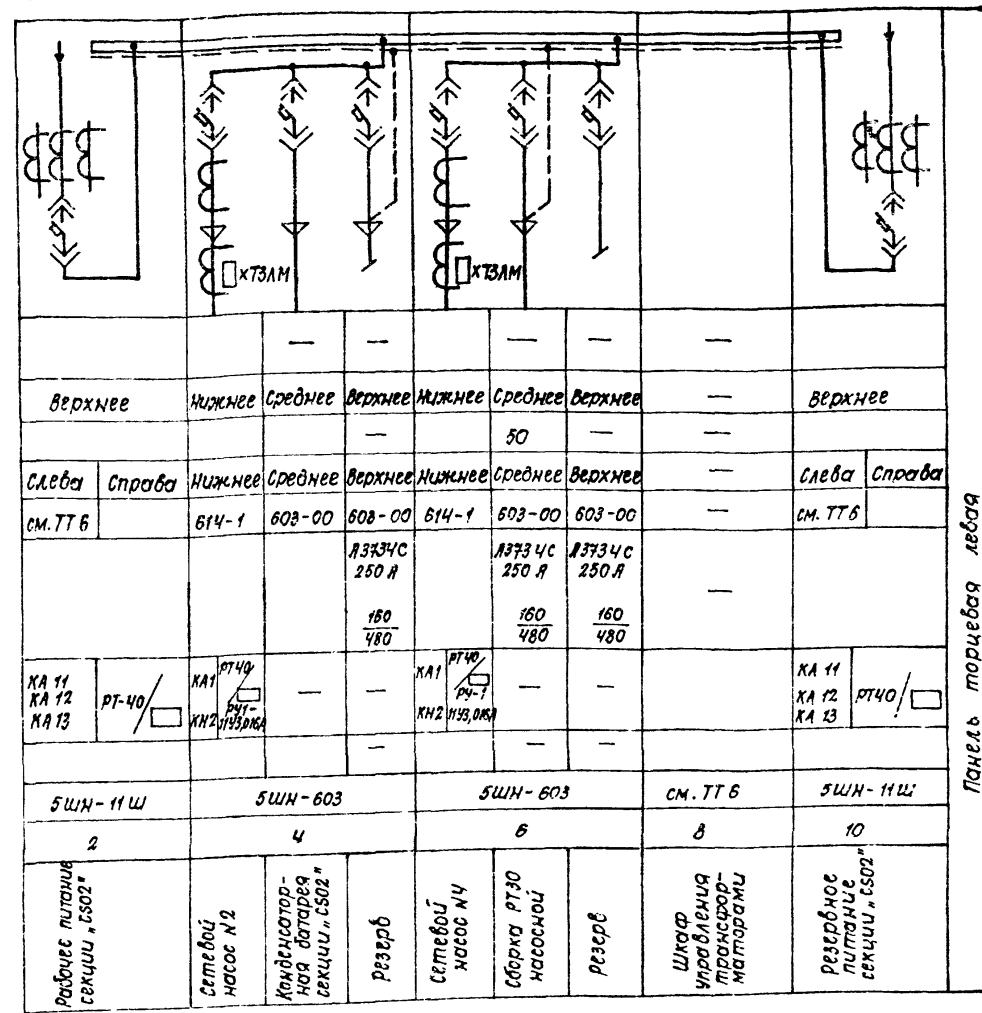 хТЗЛМ
хТЗЛМ
— — — — —
Верхнее Нижнее Среднее Верхнее Нижнее Среднее Верхнее — Верхнее
— 50 — —
Слева Справа Нижнее Среднее Верхнее Нижнее Среднее Верхнее — Слева Справа
см. ТТ6 614-1 603-00 603-00 614-1 603-00 603-00 — см. ТТ6
А3734С А3734С А3734С
250А 250А 250А
—
160 160 160
480 480 480
КА 11
КА 12
КА 13
РТ-40/
КА1 РТ40/
КН2 РУ1-
11У3,016А
— —
КА1 РТ40/
РУ-1
КН2 11У3,016А
— —
КА 11
КА 12
КА 13
РТ40/
— — —
5ШН-11Ш 5ШН-603 5ШН-603 см. ТТ6 5ШН-11Ш
2 4 6 8 10
Рабочее питание
секции „CS02"
Сетевой
насос N2
Конденсатор-
ная батарея
секции „CS02"
Резерв
Сетевой
насос N4
Сборка РТЗО
насосной
Резерв
Шкаф
управления
трансфор-
маторами
Резервное
питание
секции „CS02"
Панель торцевая левая